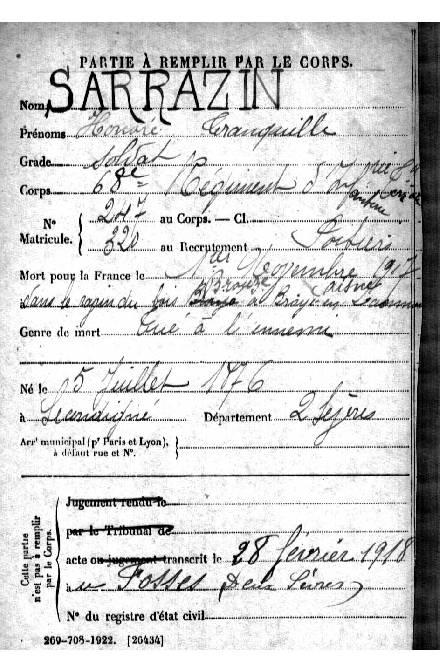 PARTIE À REMPLIR PAR LE CORPS.
Nom SARRAZIN
Prénoms Honoré Tranquille
Grade Soldat
Corps 68e Régiment d'Infanterie
N° Matricule. { 247 au Corps. — Cl.
320 au Recrutement Poitiers
Mort pour la France le 1er Novembre 1917
dans le ravin du bois à Braye en Laonnois Aisne
Genre de mort Tué à l'ennemi
Né le 25 Juillet 1876
à Département 2 Sèvres
Arrt municipal (pr Paris et Lyon),
à défaut rue et N°.
Cette partie n'est pas à remplir par le Corps.
Jugement rendu le
par le Tribunal de
acte ou jugement transcrit le 28 février 1918
à Fosses Deux Sèvres
N° du registre d'état civil
269-708-1922. [26434]